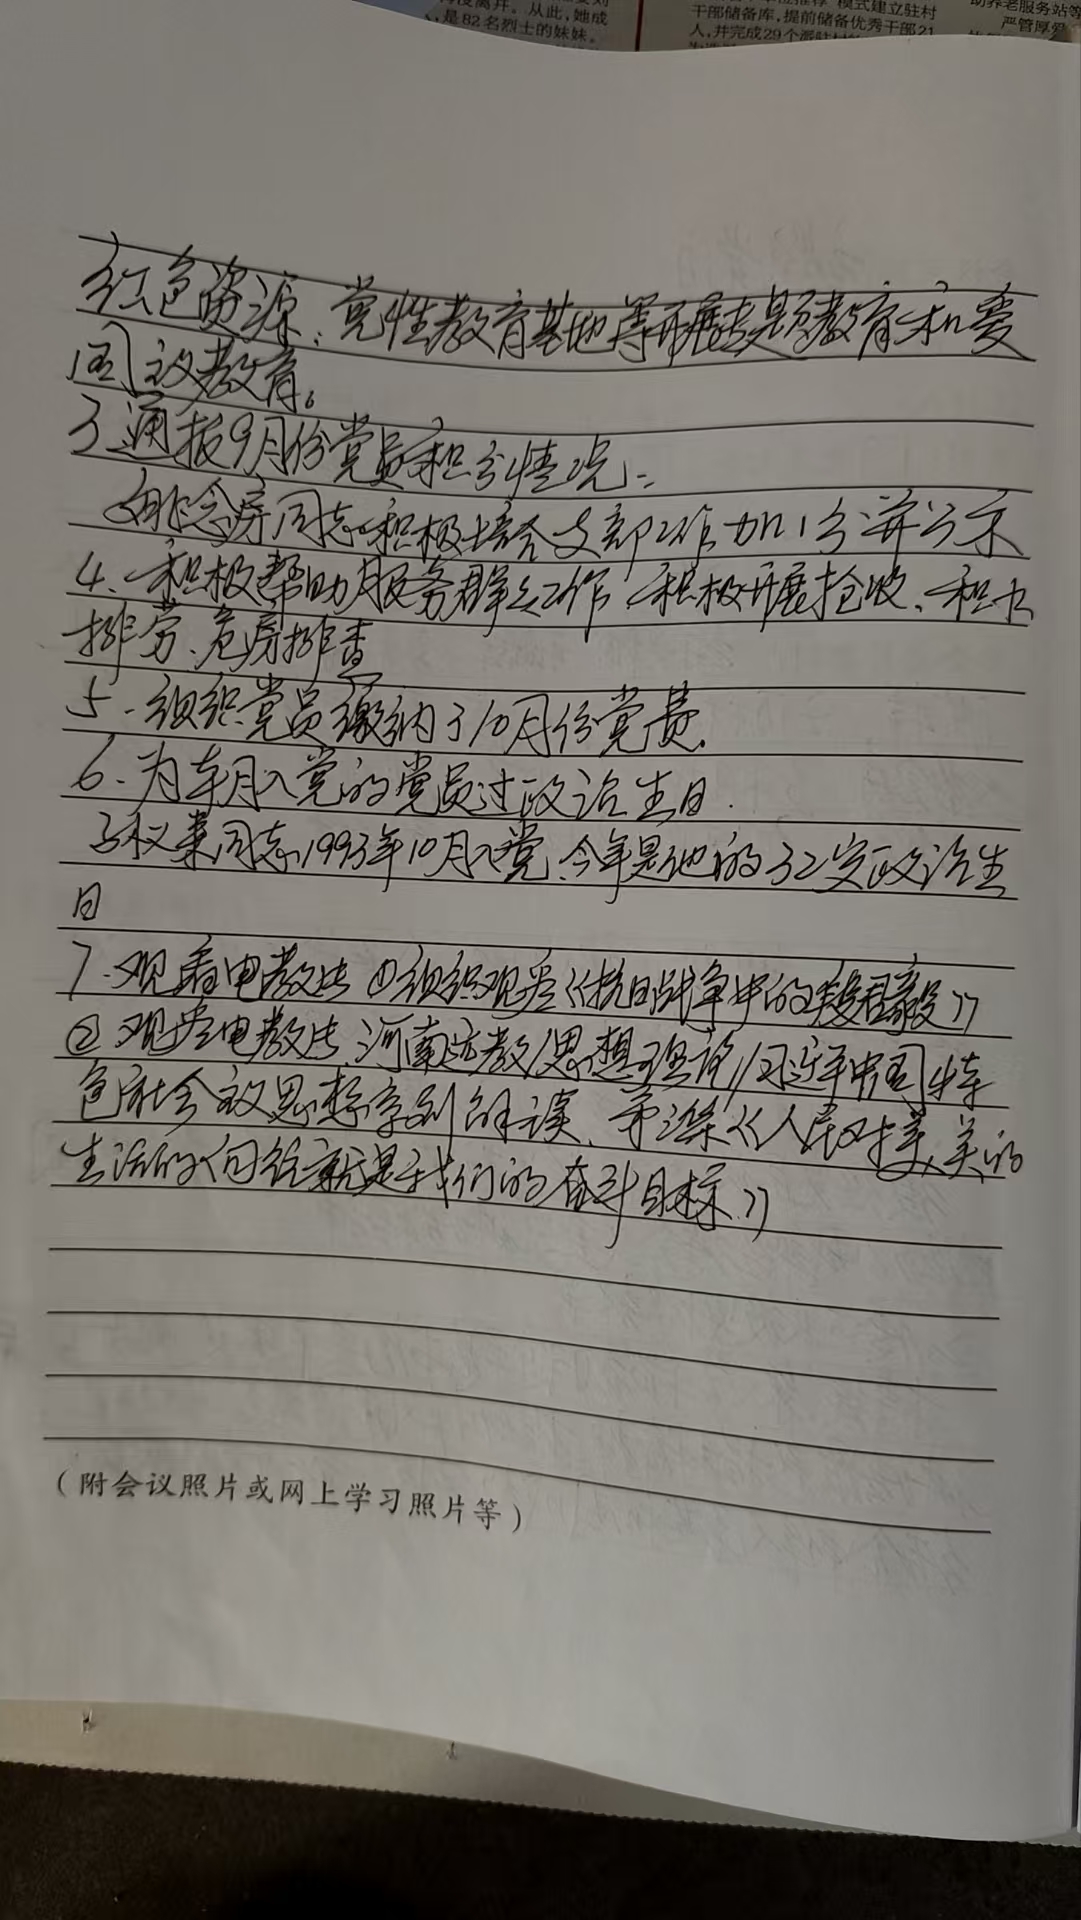 是82名烈士的妹妹。
干部储备库,提前储备优秀干部21
严管厚爱
红色资源、党性教育基地等开展专题教育和爱
国主义教育。
3 通报9月份党员积分情况:
同志积极培合支部工作加1分并公示
4、积极帮助服务群众工作、积极开展抢收、积水
排劳、危房排查
5、组织党员缴纳了10月份党费.
6、为本月入党的党员过政治生日.
同志1993年10月入党、今年是他的32岁政治生
日
7、观看电教片 ①组织观看《抗日战争中的
②观看电教片、河南远教/思想理论//习近平中国特
色社会主义思想系列解读、第 《人民对美美的
生活的向往就是我们的奋斗目标》
(附会议照片或网上学习照片等)